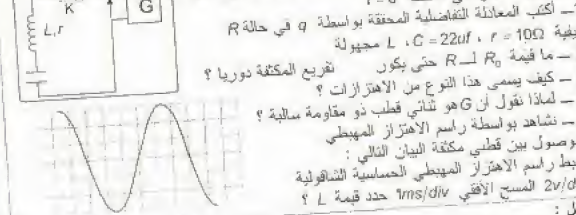 K
G
L,r
ـ أكتب المعادلة التفاضلية المحققة بواسطة q في حالة R
يفية r = 10Ω ، C = 22uf ، L مجهولة
ـ ما قيمة R₀ لـ R حتى يكون تفريغ المكثفة دوريا ؟
ـ كيف يسمى هذا النوع من الاهتزازات ؟
ـ لماذا نقول أن G هو ثنائي قطب ذو مقاومة سالبة ؟
ـ نشاهد بواسطة راسم الاهتزاز المهبطي
وصول بين قطبي مكثفة البيان التالي :
بط راسم الاهتزاز المهبطي الحساسية الشاقولية
2v/d المسح الأفقي 1ms/div حدد قيمة L ؟
ل :